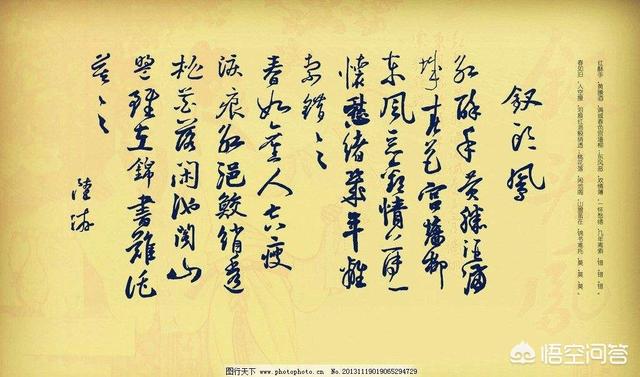 红酥手,黄縢酒,满城春色宫墙柳,东风恶,欢情薄,一怀愁绪,几年离索,错、错、错。
春如旧,人空瘦,泪痕红浥鲛绡透,桃花落,闲池阁,山盟虽在,锦书难托,莫、莫、莫。
钗头凤
红酥手黄縢酒满
城春色宫墙柳
东风恶欢情薄一
懷愁绪几年離
索错々々
春如旧人空瘦
泪痕红浥鲛绡透
桃花落闲池阁山
盟雖在錦書難托
莫々々
陸游
图行天下 www.photophoto.cn No.20131119019065294729
悟空问答